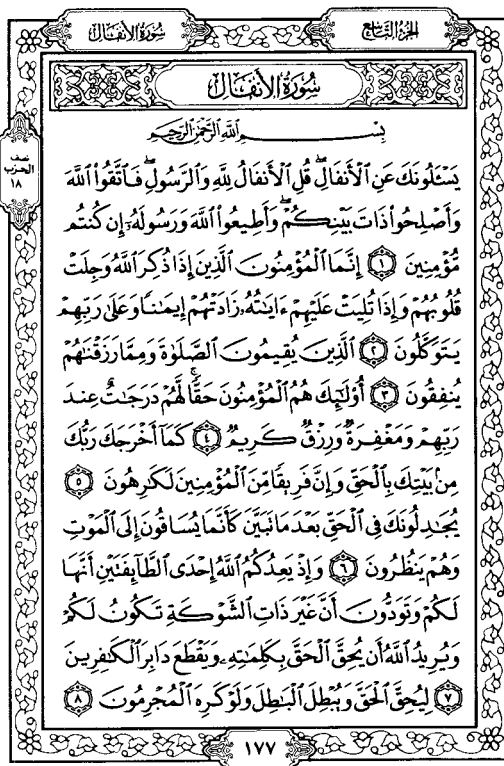 الجزء التاسع
سورة الأنفال
سورة الأنفال
نصف
الحزب
١٨
بسم الله الرحمن الرحيم
يَسْـَٔلُونَكَ عَنِ ٱلْأَنفَالِ ۖ قُلِ ٱلْأَنفَالُ لِلَّهِ وَٱلرَّسُولِ ۖ فَٱتَّقُوا۟ ٱللَّهَ
وَأَصْلِحُوا۟ ذَاتَ بَيْنِكُمْ ۖ وَأَطِيعُوا۟ ٱللَّهَ وَرَسُولَهُۥٓ إِن كُنتُم
مُّؤْمِنِينَ ١ إِنَّمَا ٱلْمُؤْمِنُونَ ٱلَّذِينَ إِذَا ذُكِرَ ٱللَّهُ وَجِلَتْ
قُلُوبُهُمْ وَإِذَا تُلِيَتْ عَلَيْهِمْ ءَايَـٰتُهُۥ زَادَتْهُمْ إِيمَـٰنًا وَعَلَىٰ رَبِّهِمْ
يَتَوَكَّلُونَ ٢ ٱلَّذِينَ يُقِيمُونَ ٱلصَّلَوٰةَ وَمِمَّا رَزَقْنَـٰهُمْ
يُنفِقُونَ ٣ أُو۟لَـٰٓئِكَ هُمُ ٱلْمُؤْمِنُونَ حَقًّا ۚ لَّهُمْ دَرَجَـٰتٌ عِندَ
رَبِّهِمْ وَمَغْفِرَةٌ وَرِزْقٌ كَرِيمٌ ٤ كَمَآ أَخْرَجَكَ رَبُّكَ
مِنۢ بَيْتِكَ بِٱلْحَقِّ وَإِنَّ فَرِيقًا مِّنَ ٱلْمُؤْمِنِينَ لَكَـٰرِهُونَ ٥
يُجَـٰدِلُونَكَ فِى ٱلْحَقِّ بَعْدَ مَا تَبَيَّنَ كَأَنَّمَا يُسَاقُونَ إِلَى ٱلْمَوْتِ
وَهُمْ يَنظُرُونَ ٦ وَإِذْ يَعِدُكُمُ ٱللَّهُ إِحْدَى ٱلطَّآئِفَتَيْنِ أَنَّهَا
لَكُمْ وَتَوَدُّونَ أَنَّ غَيْرَ ذَاتِ ٱلشَّوْكَةِ تَكُونُ لَكُمْ
وَيُرِيدُ ٱللَّهُ أَن يُحِقَّ ٱلْحَقَّ بِكَلِمَـٰتِهِۦ وَيَقْطَعَ دَابِرَ ٱلْكَـٰفِرِينَ
٧ لِيُحِقَّ ٱلْحَقَّ وَيُبْطِلَ ٱلْبَـٰطِلَ وَلَوْ كَرِهَ ٱلْمُجْرِمُونَ ٨
١٧٧